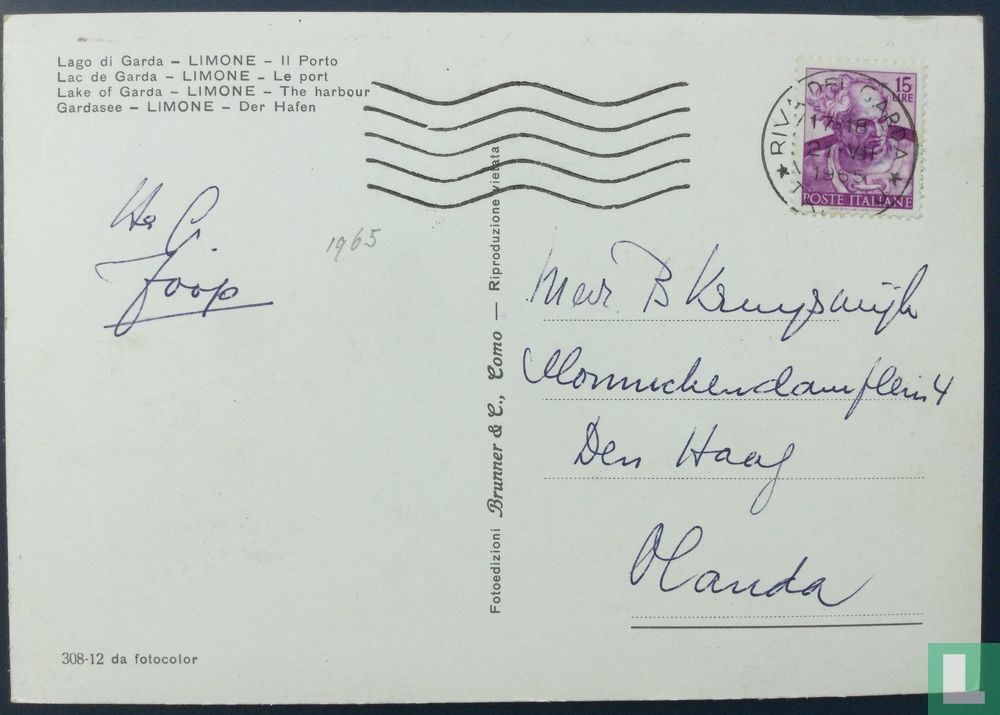 Lago di Garda – LIMONE – Il Porto
Lac de Garda – LIMONE – Le port
Lake of Garda – LIMONE – The harbour
Gardasee – LIMONE – Der Hafen
15
LIRE
RIVA DEL GARDA
17-18
1965
POSTE ITALIANE
Joop
1965
Fotoedizioni Brunner & C., Como — Riproduzione vietata
Mevr. B Kruyswijk
Monnickendamplein 4
Den Haag
Olanda
308-12 da fotocolor
L